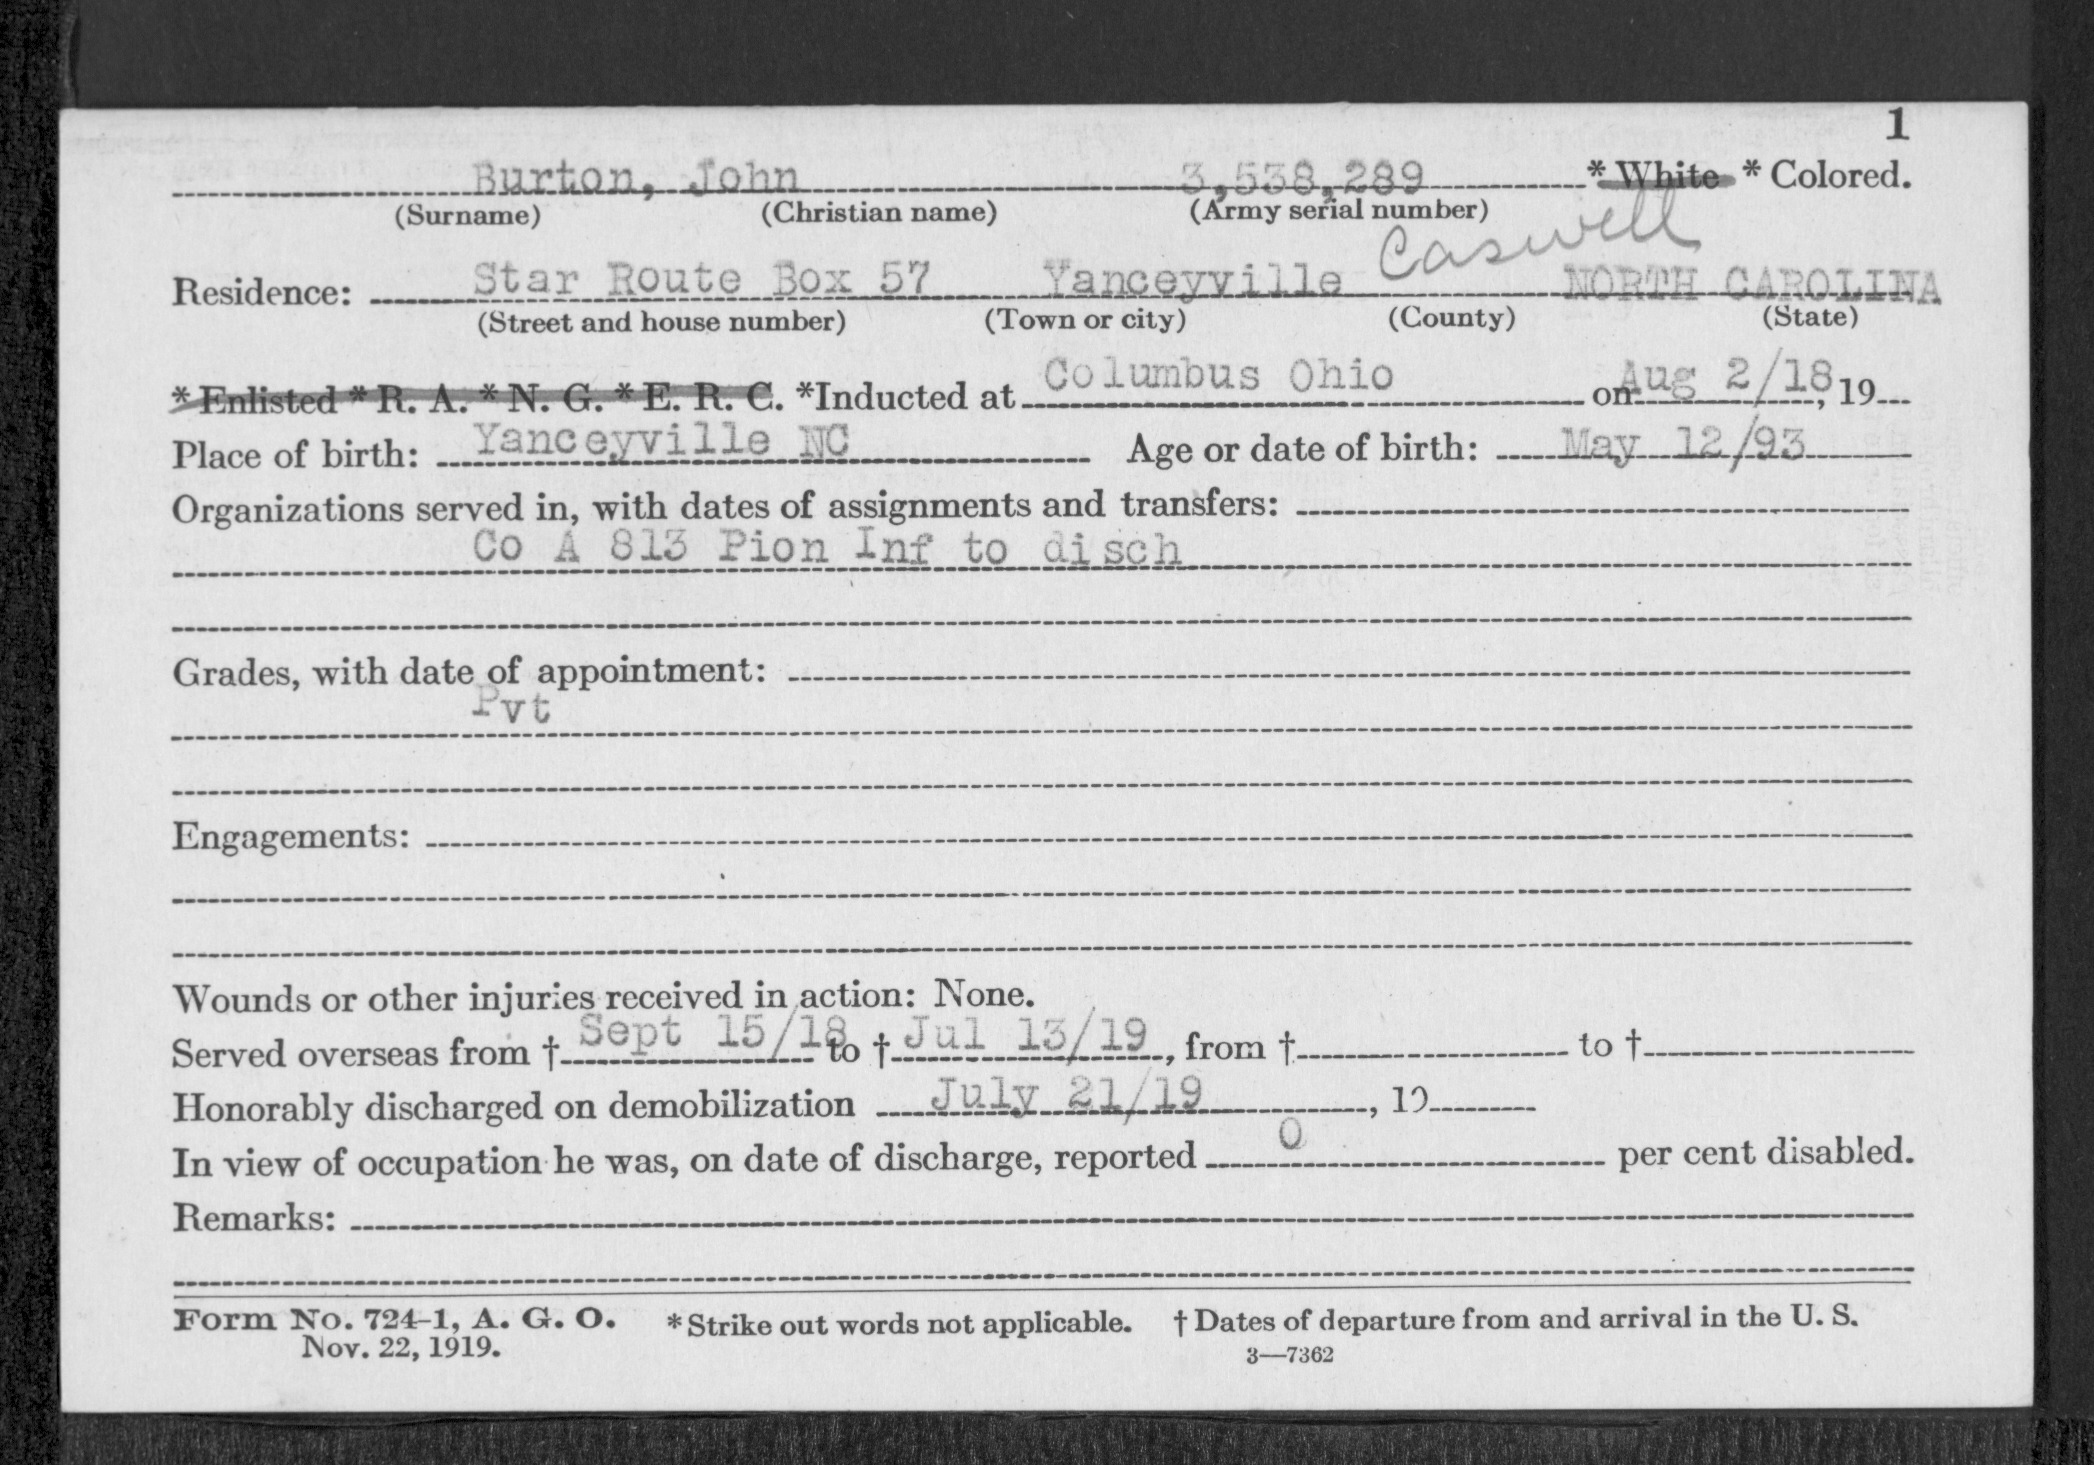 1
Burton, John 3,538,289 * White * Colored.
(Surname) (Christian name) (Army serial number)
Caswell
Residence: Star Route Box 57 Yanceyville NORTH CAROLINA
(Street and house number) (Town or city) (County) (State)
* Enlisted * R. A. * N. G. * E. R. C. *Inducted at Columbus Ohio on Aug 2/18, 19
Place of birth: Yanceyville NC Age or date of birth: May 12/93
Organizations served in, with dates of assignments and transfers:
Co A 813 Pion Inf to disch
Grades, with date of appointment:
Pvt
Engagements:
Wounds or other injuries received in action: None.
Served overseas from † Sept 15/18 to † Jul 13/19, from † to †
Honorably discharged on demobilization July 21/19, 19
In view of occupation he was, on date of discharge, reported 0 per cent disabled.
Remarks:
Form No. 724-1, A. G. O. * Strike out words not applicable. † Dates of departure from and arrival in the U. S.
Nov. 22, 1919. 3—7362